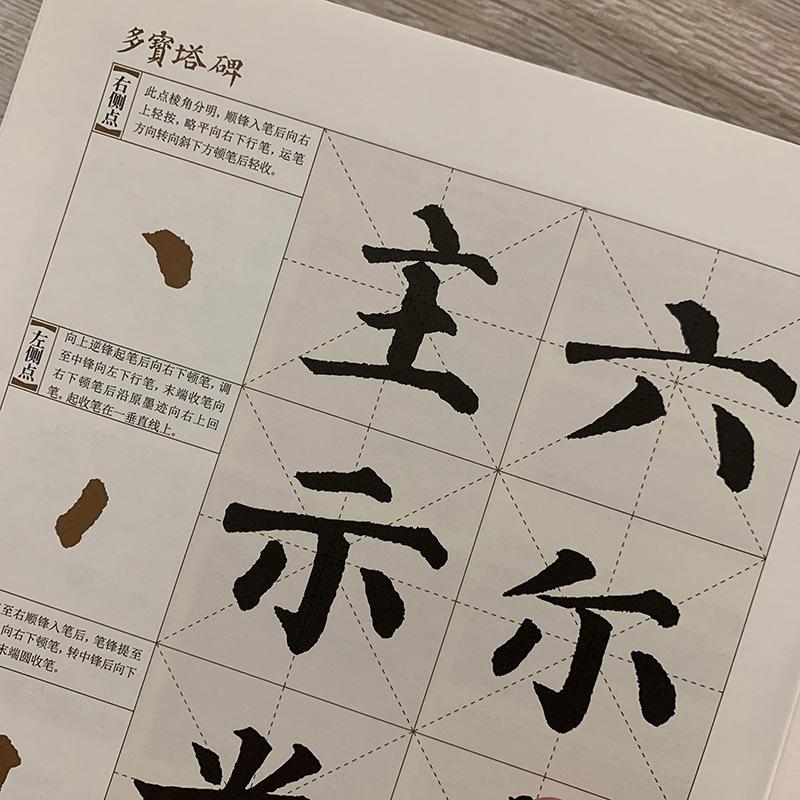 多寶塔碑
【右侧点】
此点棱角分明，顺锋入笔后向右
上轻按，略平向右下行笔，运笔
方向转向斜下方顿笔后轻收。
主 六
【左侧点】
向上逆锋起笔后向右下顿笔，调
至中锋向左下行笔，末端收笔向
右下顿笔后沿原墨迹向右上回
笔。起收笔在一垂直线上。
示 尓
至右顺锋入笔后，笔锋提至
向右下顿笔，转中锋后向下
末端圆收笔。